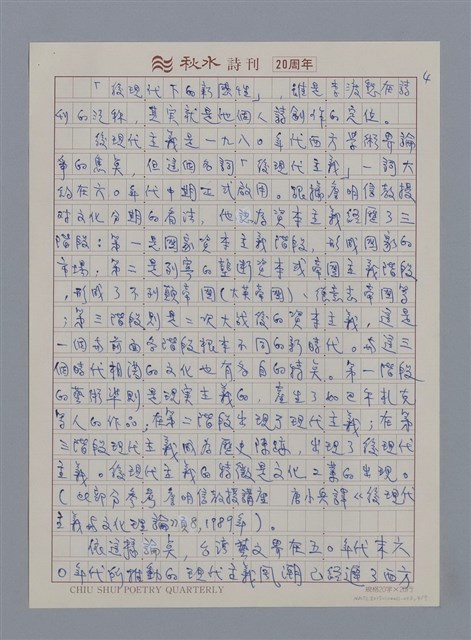 秋水詩刊 20周年
4
「後現代下的新感性」,雖是李渡愁在詩
刊的泛稱,其實就是他個人詩創作的定位。
後現代主義是一九八〇年代西方學術界論
爭的焦點,但這個名詞「後現代主義」一詞大
約在六〇年代中期正式啟用。根據詹明信教授
對文化分期的看法,他認為資本主義經歷了三
階段:第一是國家資本主義階段,形成國家的
市場,第二是列寧的壟斷資本或帝國主義階段
,形成了不列顛帝國(大英帝國)、德意志帝國等
;第三階段則是二次大戰後的資本主義,這是
一個與前面各階段根本不同的新時代。與這三
個時代相關的文化也有各自的特點。第一階段
的藝術準則是現實主義的,產生了如巴爾扎克
等人的作品;在第二階段出現了現代主義;在第
三階段現代主義成為歷史陳跡,出現了後現代
主義。後現代主義的特徵是文化工業的出現。
(此部分參考詹明信教授講座 唐小兵譯《後現代
主義與文化理論》頁8,1989年)。
依這據論點,台灣藝文界在五〇年代末六
〇年代所推動的現代主義風潮已經遲了西方
CHIU SHUI POETRY QUARTERLY